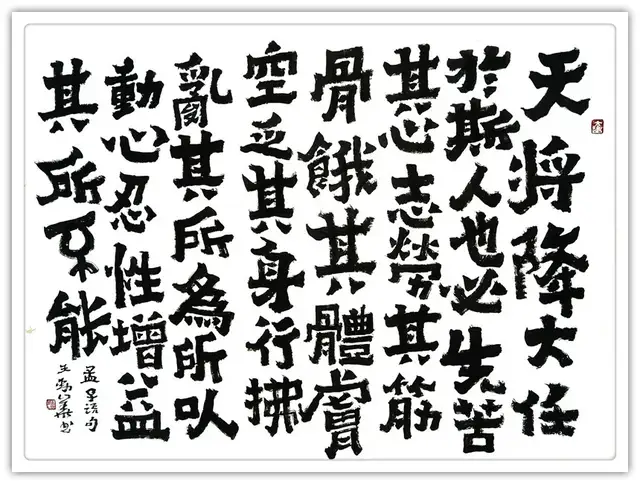 天将降大任
於斯人也必先苦
其心志勞其筋
骨餓其體膚
空乏其身行拂
亂其所為所以
動心忍性增益
其所不能
孟子语句
王